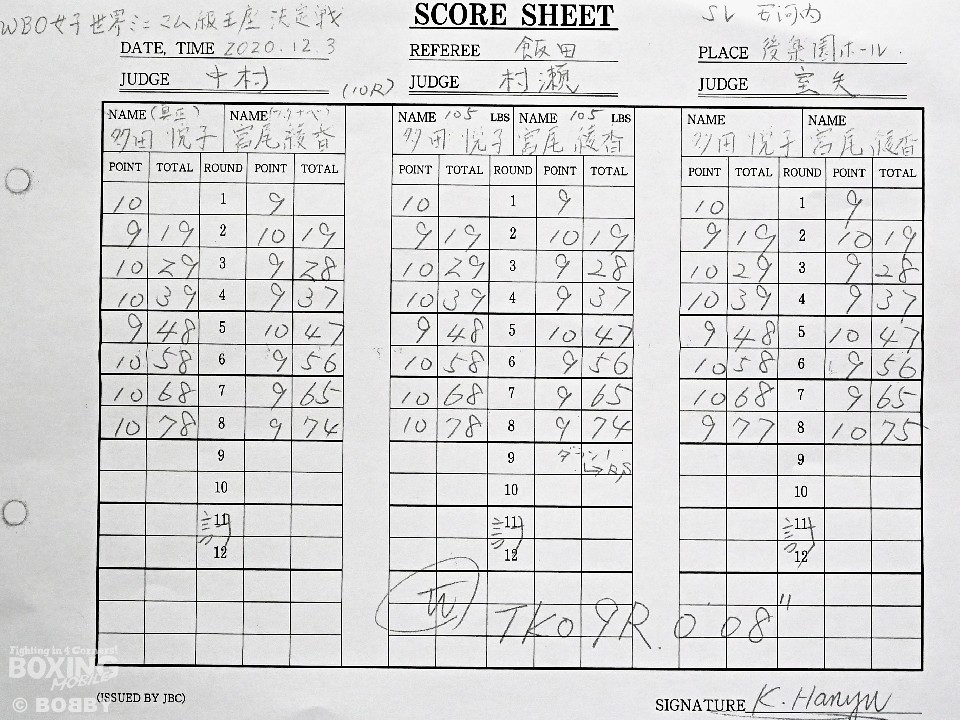 WBO女子世界ミニマム級王座決定戦
SCORE SHEET
SV 安河内
DATE, TIME 2020.12.3
REFEREE 飯田
PLACE 後楽園ホール
JUDGE 中村
(10R)
JUDGE 村瀬
JUDGE 室矢
NAME (真正) NAME (ワタナベ) NAME 105 LBS NAME 105 LBS NAME NAME
多田 悦子 宮尾 綾香 多田 悦子 宮尾 綾香 多田 悦子 宮尾 綾香
POINT TOTAL ROUND POINT TOTAL POINT TOTAL ROUND POINT TOTAL POINT TOTAL ROUND POINT TOTAL
10 1 9 10 1 9 10 1 9
9 19 2 10 19 9 19 2 10 19 9 19 2 10 19
10 29 3 9 28 10 29 3 9 28 10 29 3 9 28
10 39 4 9 37 10 39 4 9 37 10 39 4 9 37
9 48 5 10 47 9 48 5 10 47 9 48 5 10 47
10 58 6 9 56 10 58 6 9 56 10 58 6 9 56
10 68 7 9 65 10 68 7 9 65 10 68 7 9 65
10 78 8 9 74 10 78 8 9 74 9 77 8 10 75
9 9 ダウン1 9
10 10 10
11 11 11
12 12 12
W TKO 9R. 0 08"
Fighting in 4 Corners!
BOXING
MOBILE
© BOBBY
(ISSUED BY JBC)
SIGNATURE K. Hanyu